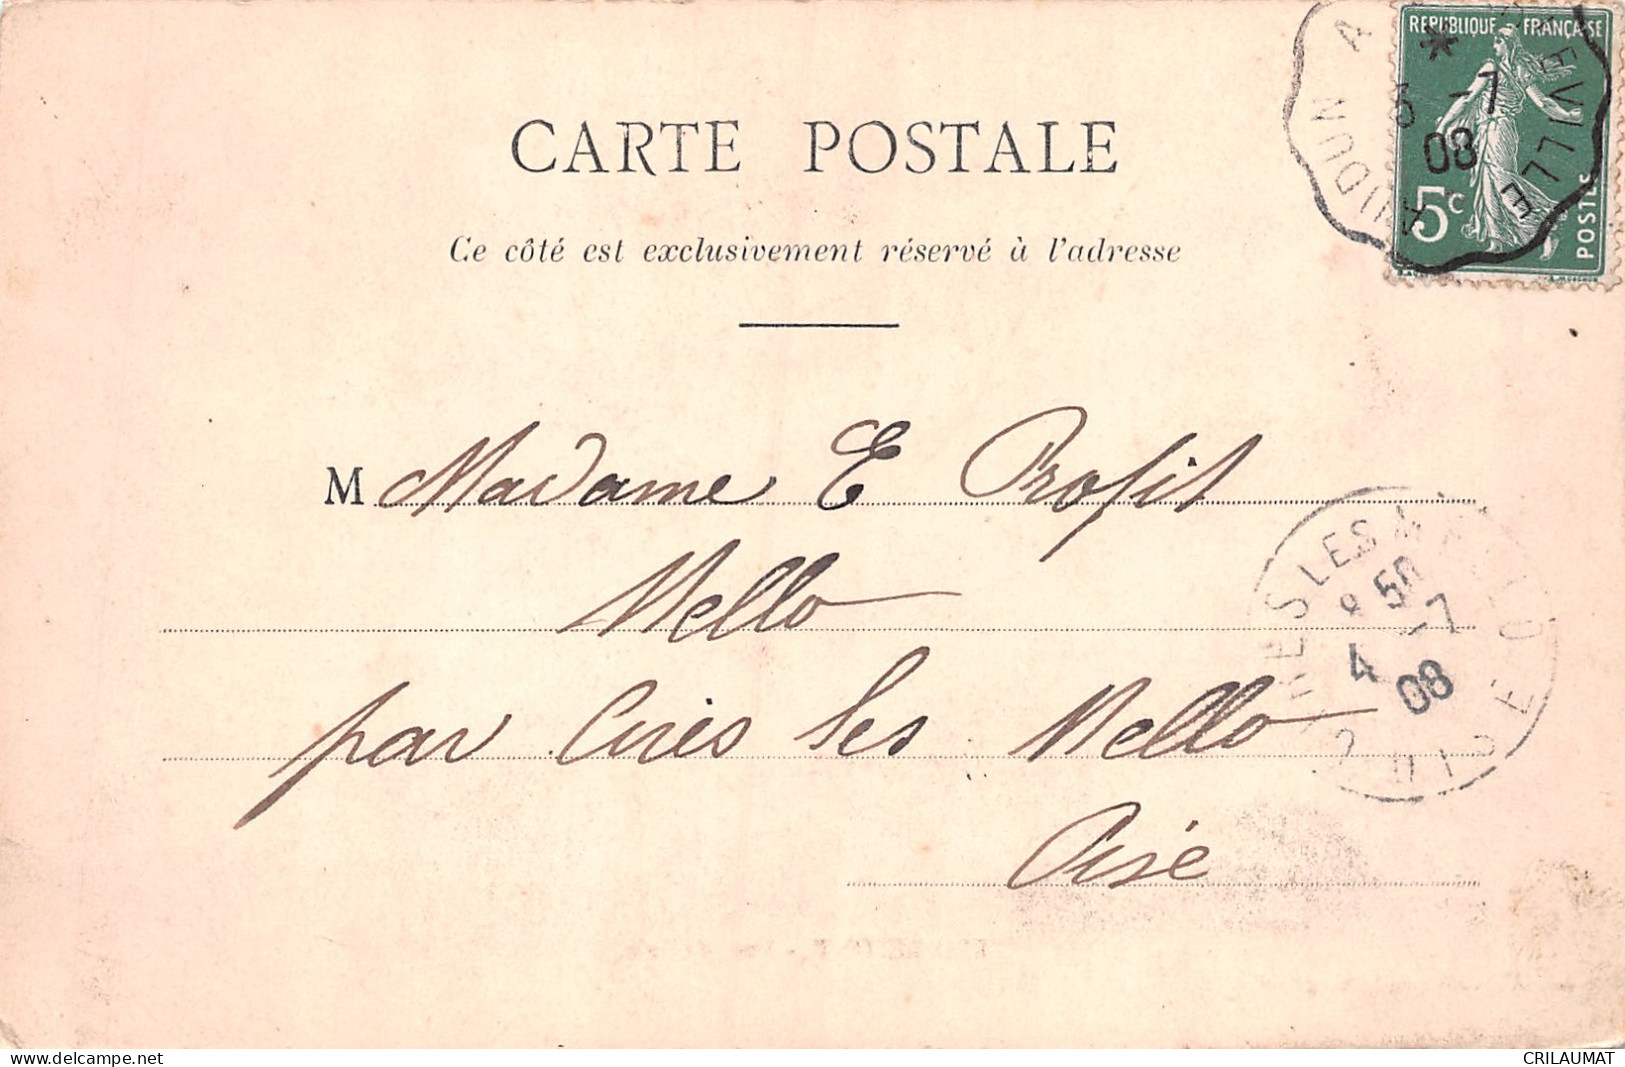 REPUBLIQUE FRANÇAISE
5c
POSTES
AUDUN A
EVILLE
3 -7
08
CARTE POSTALE
Ce côté est exclusivement réservé à l'adresse
M Madame E Profit
Mello
par Cires les Mello
Oise
LES
8 50
4 -7
08
www.delcampe.net
CRILAUMAT